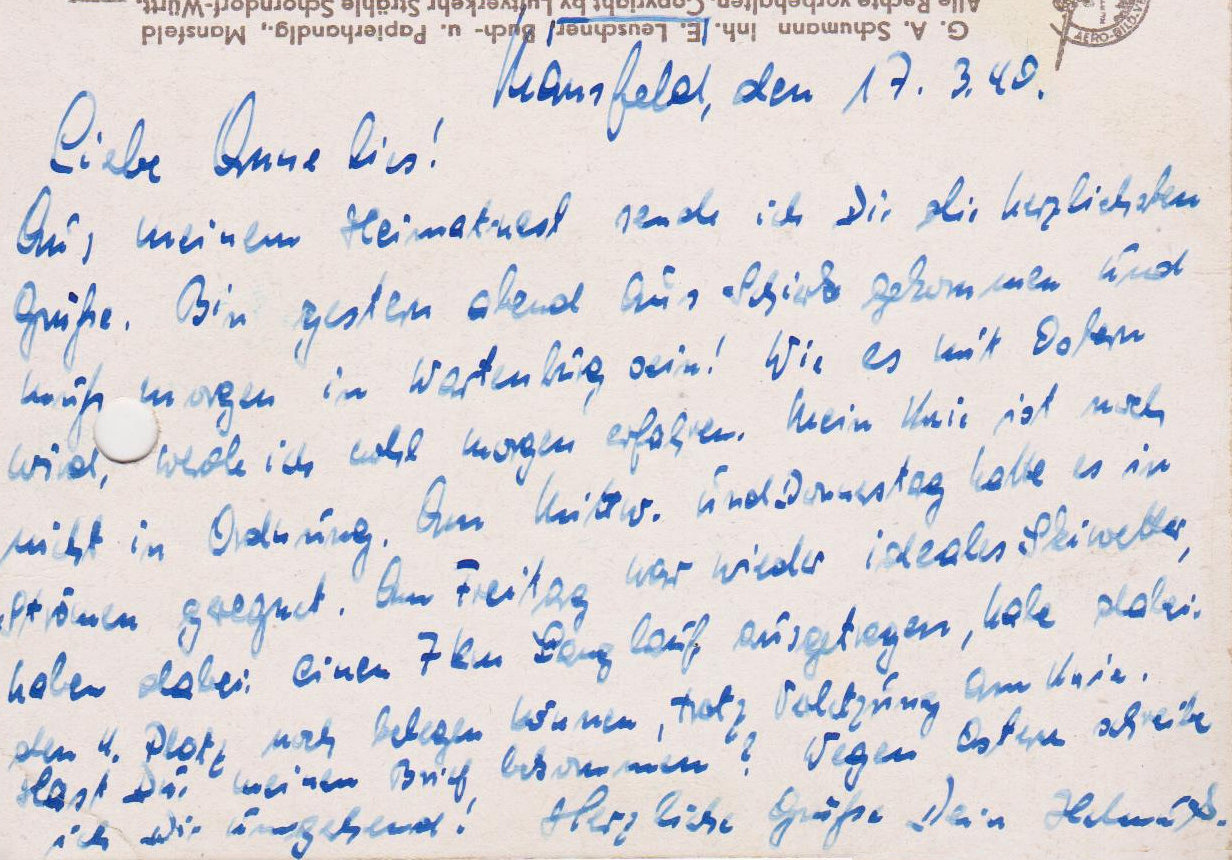 Alle Rechte vorbehalten. Copyright by Luftverkehr Strähle Schorndorf-Württ.
G. A. Schumann Inh. E. Leuschner, Buch- u. Papierhandlg., Mansfeld
AERO-BILD
Mansfeld, den 17. 3. 40.
Liebe Annelies!
Aus meinem Heimatnest sende ich Dir die herzlichsten
Grüße. Bin gestern abend aus Schierke gekommen und
muß morgen in Wartenburg sein! Wie es mit Ostern
wird, werde ich wohl morgen erfahren. Mein Knie ist noch
nicht in Ordnung. Am Mittw. und Donnerstag hatte es in
Strömen geregnet. Am Freitag war wieder ideales Skiwetter,
haben dabei einen 7 km Langlauf ausgetragen, habe dabei
den 4. Platz noch belegen können, trotz Verletzung am Knie.
Hast Du meinen Brief bekommen? Wegen Ostern schreibe
ich Dir umgehend! Herzliche Grüße Dein Helmut.